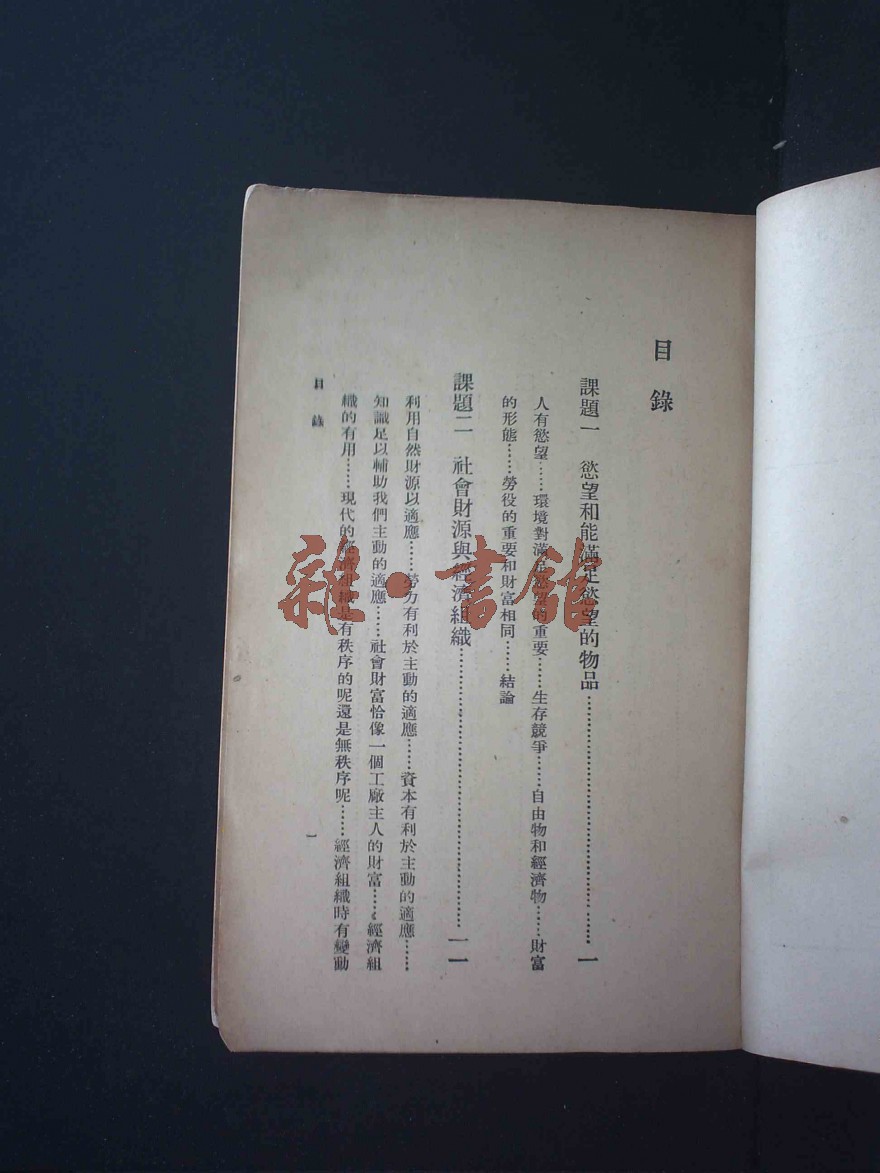 目錄
課題一　慾望和能滿足慾望的物品……………………………………一
人有慾望……環境對滿足慾望的重要……生存競爭……自由物和經濟物……財富
的形態……勞役的重要和財富相同……結論
課題二　社會財源與經濟組織……………………………………一一
利用自然財源以適應……勞力有利於主動的適應……資本有利於主動的適應……
知識足以輔助我們主動的適應……社會財富恰像一個工廠主人的財富……經濟組
織的有用……現代的經濟組織是有秩序的呢還是無秩序呢……經濟組織時有變動
目錄
一
雜·書館